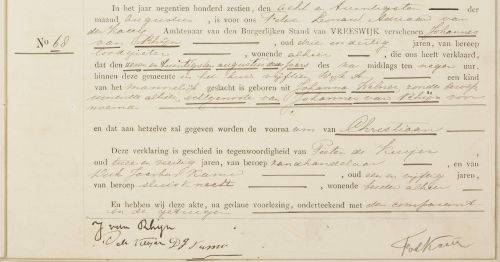 In het jaar negentien honderd zestien, den acht en twintigsten der
maand Augustus, is voor ons Pieter Leonard Adriaan van
Ambtenaar van den Burgerlijken Stand van VREESWIJK verschenen Johannes
No 68
van Rhijn, oud drie en dertig jaren, van beroep
, wonende alhier, die ons heeft verklaard,
dat den zeven en twintigsten augustus dezes jaars des na middags ten negen uur,
binnen deze gemeente in het huis vijftien Wijk A, een kind
van het mannelijk geslacht is geboren uit Johanna zonder beroep
wonende alhier, echtgenoote van Johannes van Rhijn voor-
noemd
en dat aan hetzelve zal gegeven worden de voorna am van Christiaan
Deze verklaring is geschied in tegenwoordigheid van Pieter de
oud twee en veertig jaren, van beroep handelaar, en van
Dirk oud een en vijftig jaren,
van beroep sluisknecht, wonende beide alhier
En hebben wij deze akte, na gedane voorlezing, onderteekend met den comparant
en de getuigen
J van Rhijn